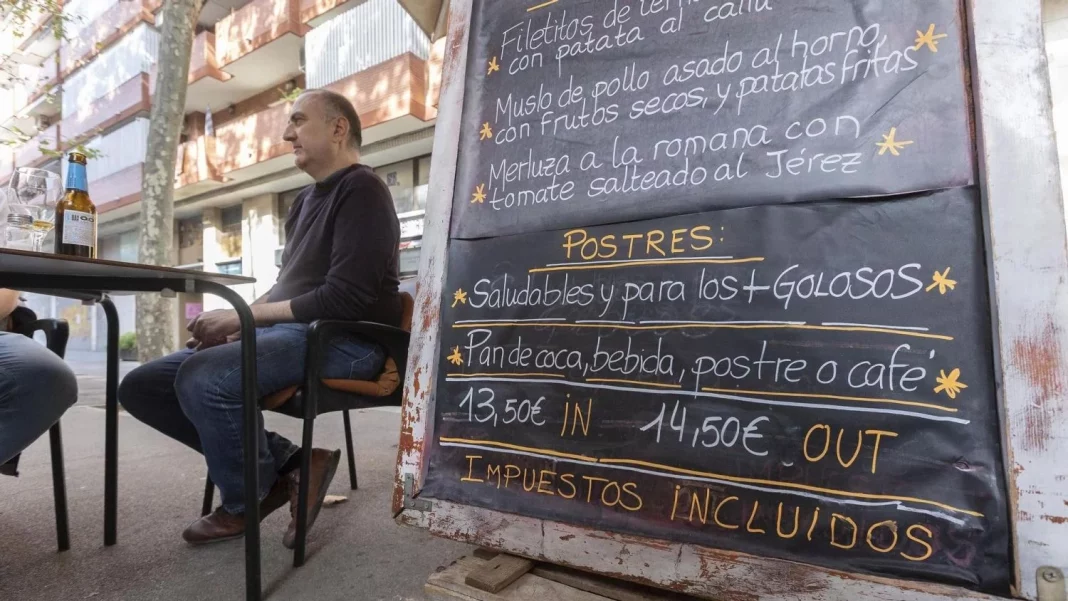 Filetitos de
con patata al caliu
Muslo de pollo asado al horno,
con frutos secos, y patatas fritas
Merluza a la romana con
tomate salteado al Jérez
POSTRES:
Saludables y para los + GOLOSOS
Pan de coca, bebida, postre o café
13,50€ iN 14,50€ OUT
IMPUESTOS iNCLUiDOS